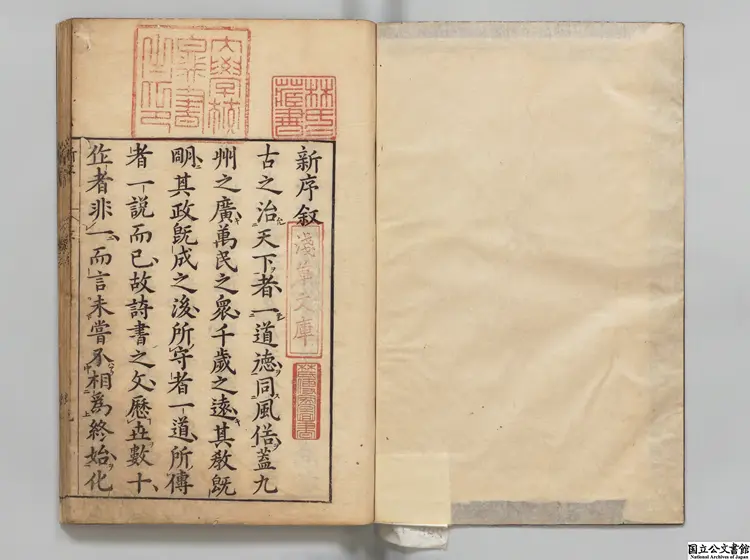 大學校
圖書
之印
林氏
藏書
新序叙
淺草文庫
古之治天下者一道德同風俗蓋九
州之廣萬民之衆千歲之遠其敎旣
明其政旣成之後所守者一道所傳
者一說而已故詩書之文歷世數十
作者非一而言未嘗不相爲終始化
国立公文書館
National Archives of Japan